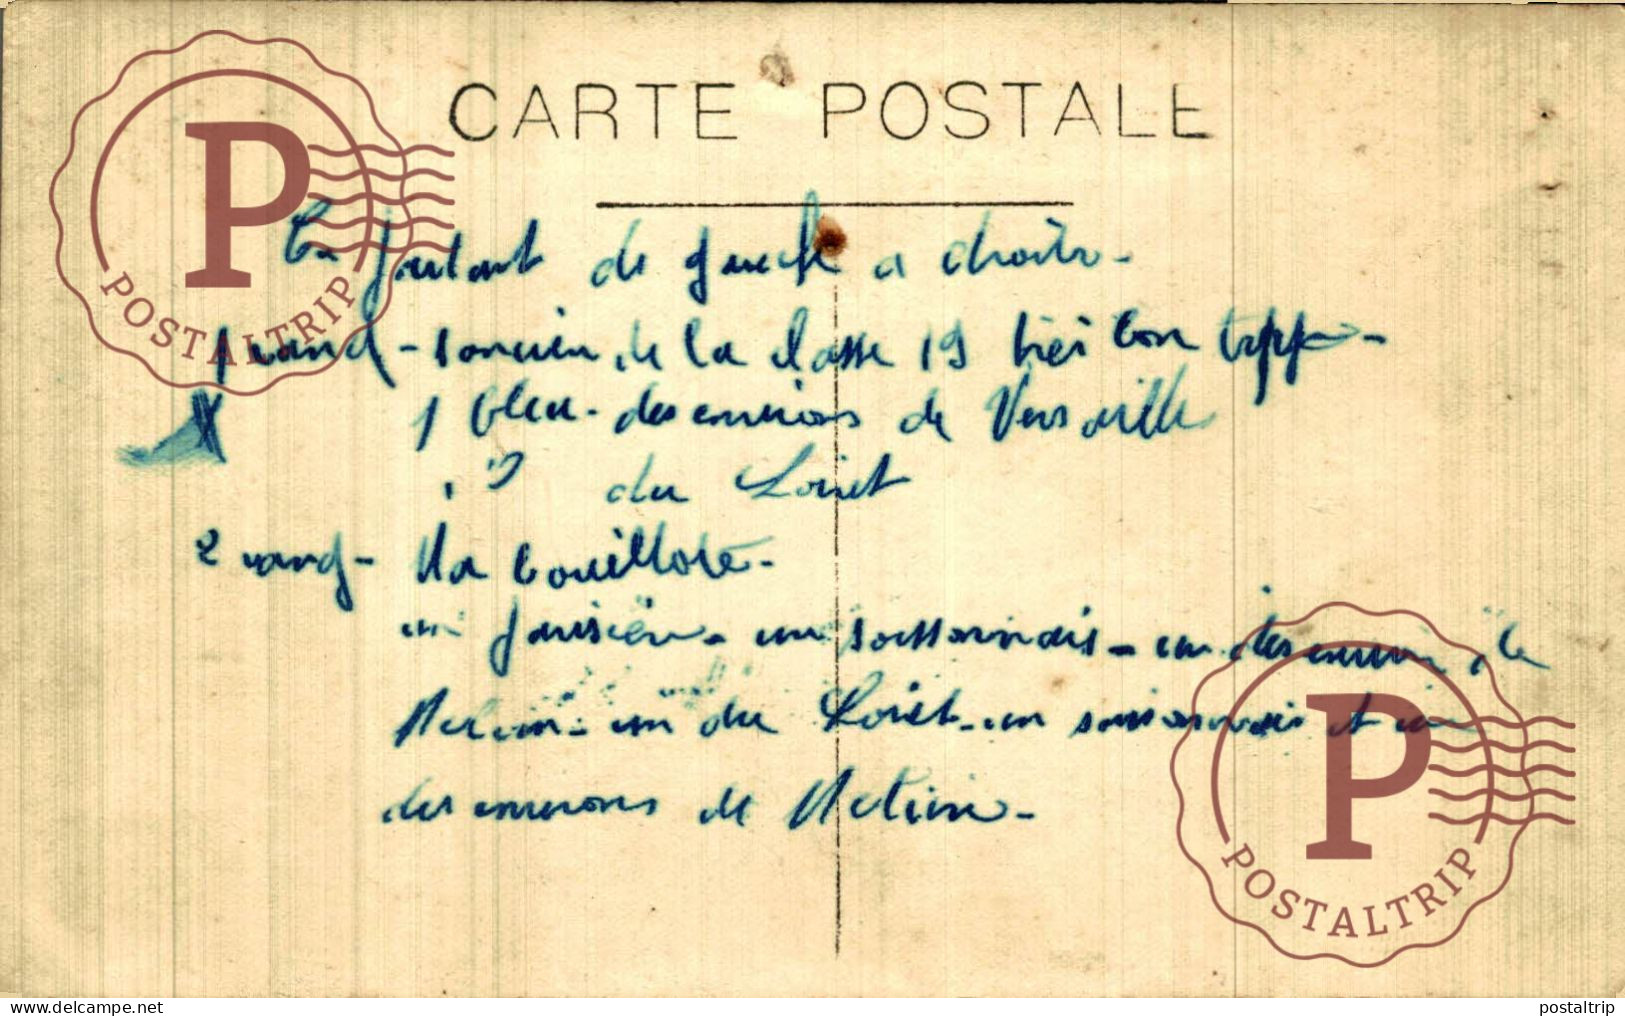 CARTE POSTALE
En partant de gauche a droite -
1 rang - 1 ancien de la classe 19 très bon type -
1 bleu - des environs de Versaille
1 " du Loiret
2 rang - Ma bouillote -
un parisien - un soissonnais - un des environ de
Melun - un du Loiret - un soissonnais et un
des environs de Melun -
POSTALTRIP
POSTALTRIP
https://www.delcampe.net
postaltrip